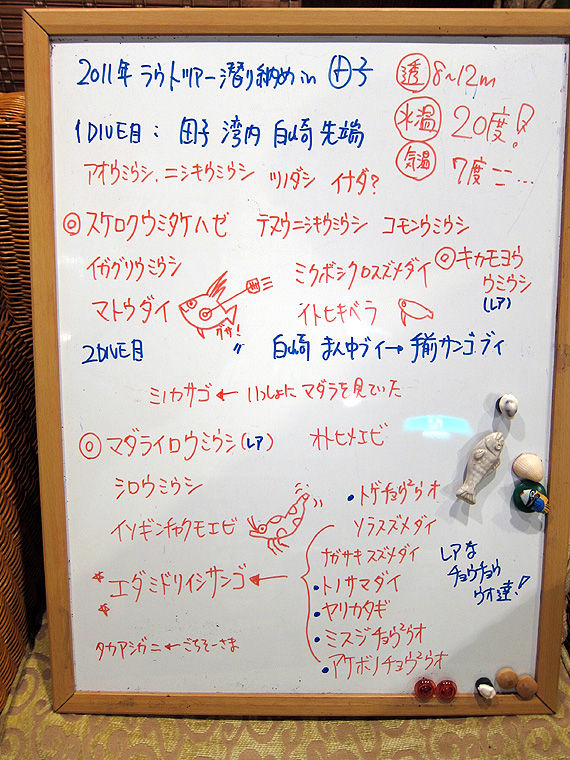 2011年 ラウトツアー潜り納め in 田子
透 8〜12m
水温 20度!
気温 7度ニ…
1DIVE目: 田子 湾内 白崎 先端
アオウミウシ、ニシキウミウシ ツノダシ イナダ?
◎スケロクウミタケハゼ テヌウニシキウミウシ コモンウミウシ
イガグリウミウシ ミツボシクロスズメダイ ◎キカモヨウウミウシ
(レア)
マトウダイ グサ! イトヒキベラ
2DIVE目 〃 白崎 まん中ブイ→手前サンゴ、ブイ
ミノカサゴ ← いっしょにマダラを見ていた
◎マダライロウミウシ(レア) オトヒメエビ
シロウミウシ
イソギンチャクモエビ
・トゲチョウ2ウオ
ソラスズメダイ
ナガサキスズメダイ
*エダミドリイシサンゴ ←
*
・トノサマダイ
・ヤリカタギ
・ミスジチョウ2ウオ
・アケボノチョウ2ウオ
レアな
チョウチョウ
ウオ達!
タカアシガニ ← ごちそーさま